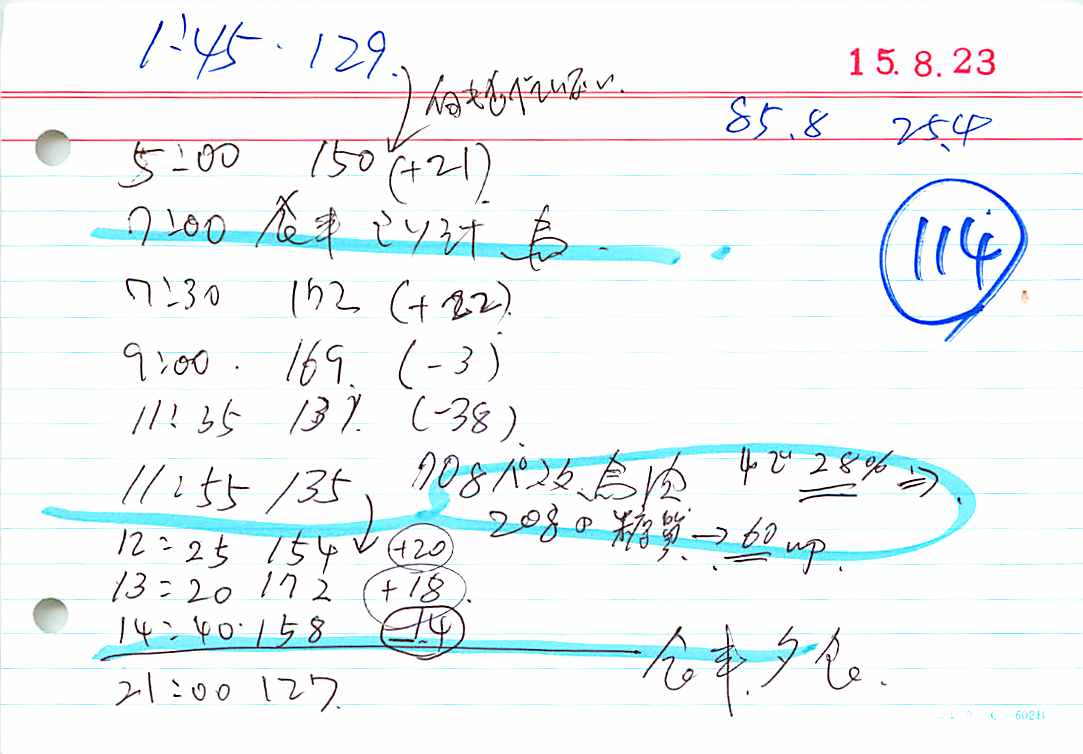 1:45 · 129.
15.8.23
何も食べていない.
85.8 25.4
5:00 150 (+21)
114
7:00 食事 鳥.
7:30 172 (+22)
9:00 · 169. (-3)
11:35 131. (-38)
11:55 135 70g 28% ⇒
20gの糖質→60 up.
12:25 154 (+20)
13:20 172 +18
14:40 · 158 -14
食事.夕食.
21:00 127.